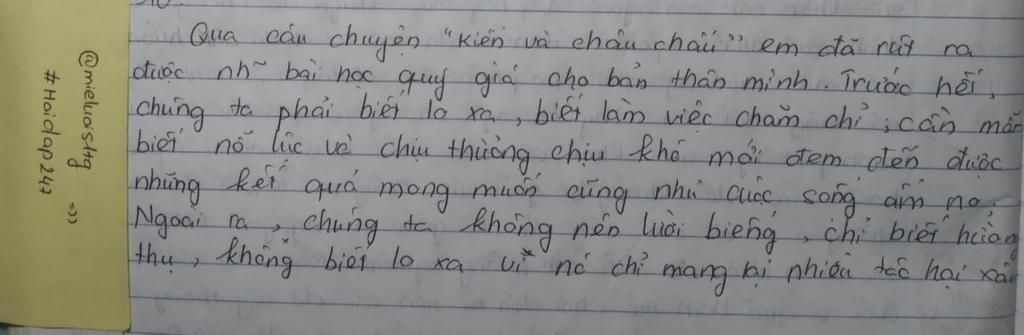 Qua câu chuyện "Kiến và châu chấu" em đã rút ra
được nh~ bài học quý giá cho bản thân mình. Trước hết,
chúng ta phải biết lo xa, biết làm việc chăm chỉ, cần mẫn
biết nỗ lực và chịu thường chịu khó mới đem đến được
những kết quả mong muốn cũng như cuộc sống ấm no.
Ngoài ra, chúng ta không nên lười biếng, chỉ biết hưởng
thụ, không biết lo xa vì nó chỉ mang lại nhiều tác hại xấu
@mieluoistg =))
#Hoidap247